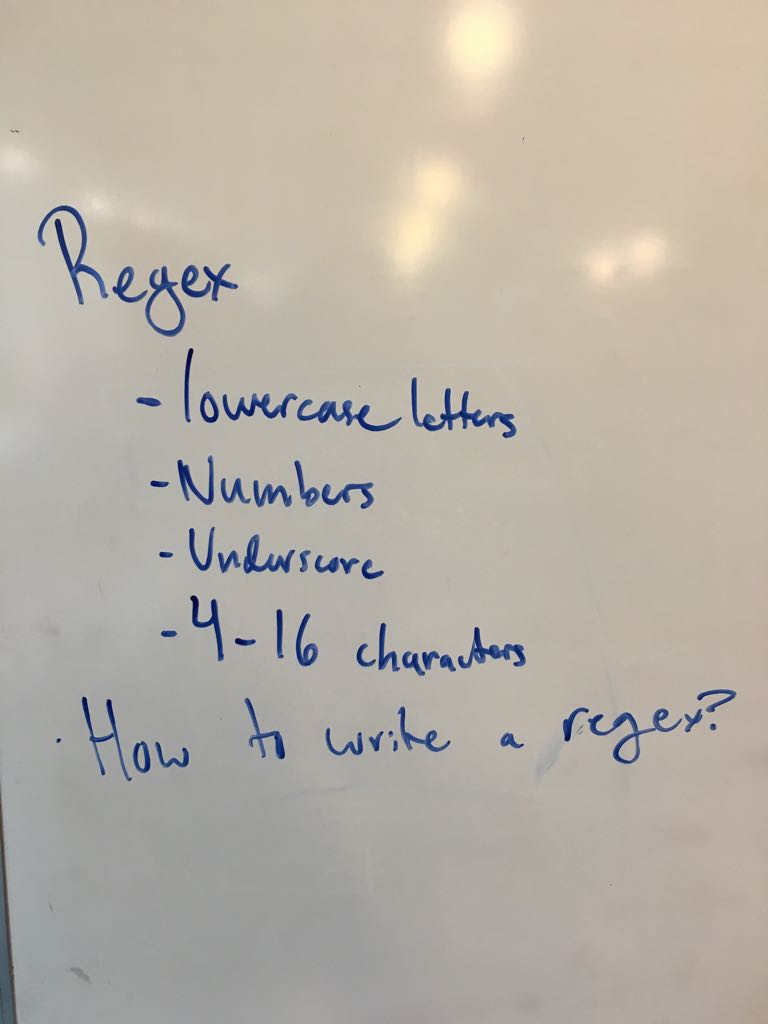 Regex
- lowercase letters
- Numbers
- Underscore
- 4-16 characters
. How to write a regex?